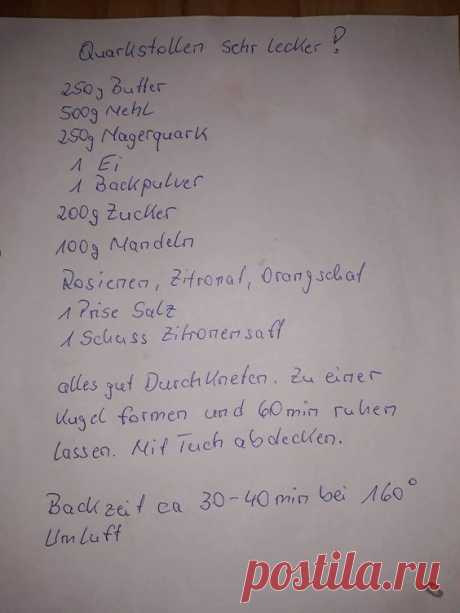 Quarkstollen sehr lecker!
250g Butter
500g Mehl
250g Magerquark
1 Ei
1 Backpulver
200g Zucker
100g Mandeln
Rosienen, Zitronat, Orangschal
1 Prise Salz
1 Schuss Zitronensaft
alles gut Durchkneten. Zu einer
Kugel formen und 60min ruhen
lassen. Mit Tuch abdecken.
Backzeit ca 30-40min bei 160°
Umluft
postila.ru